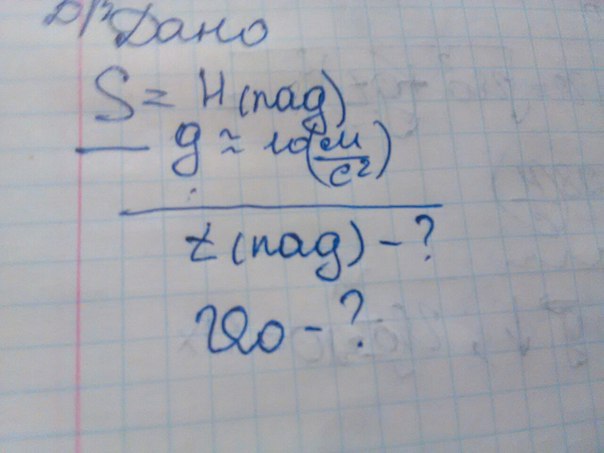 Д/з Дано
S = H (пад)
g ≈ 10 (м/с²)
t (пад) - ?
V₀ - ?